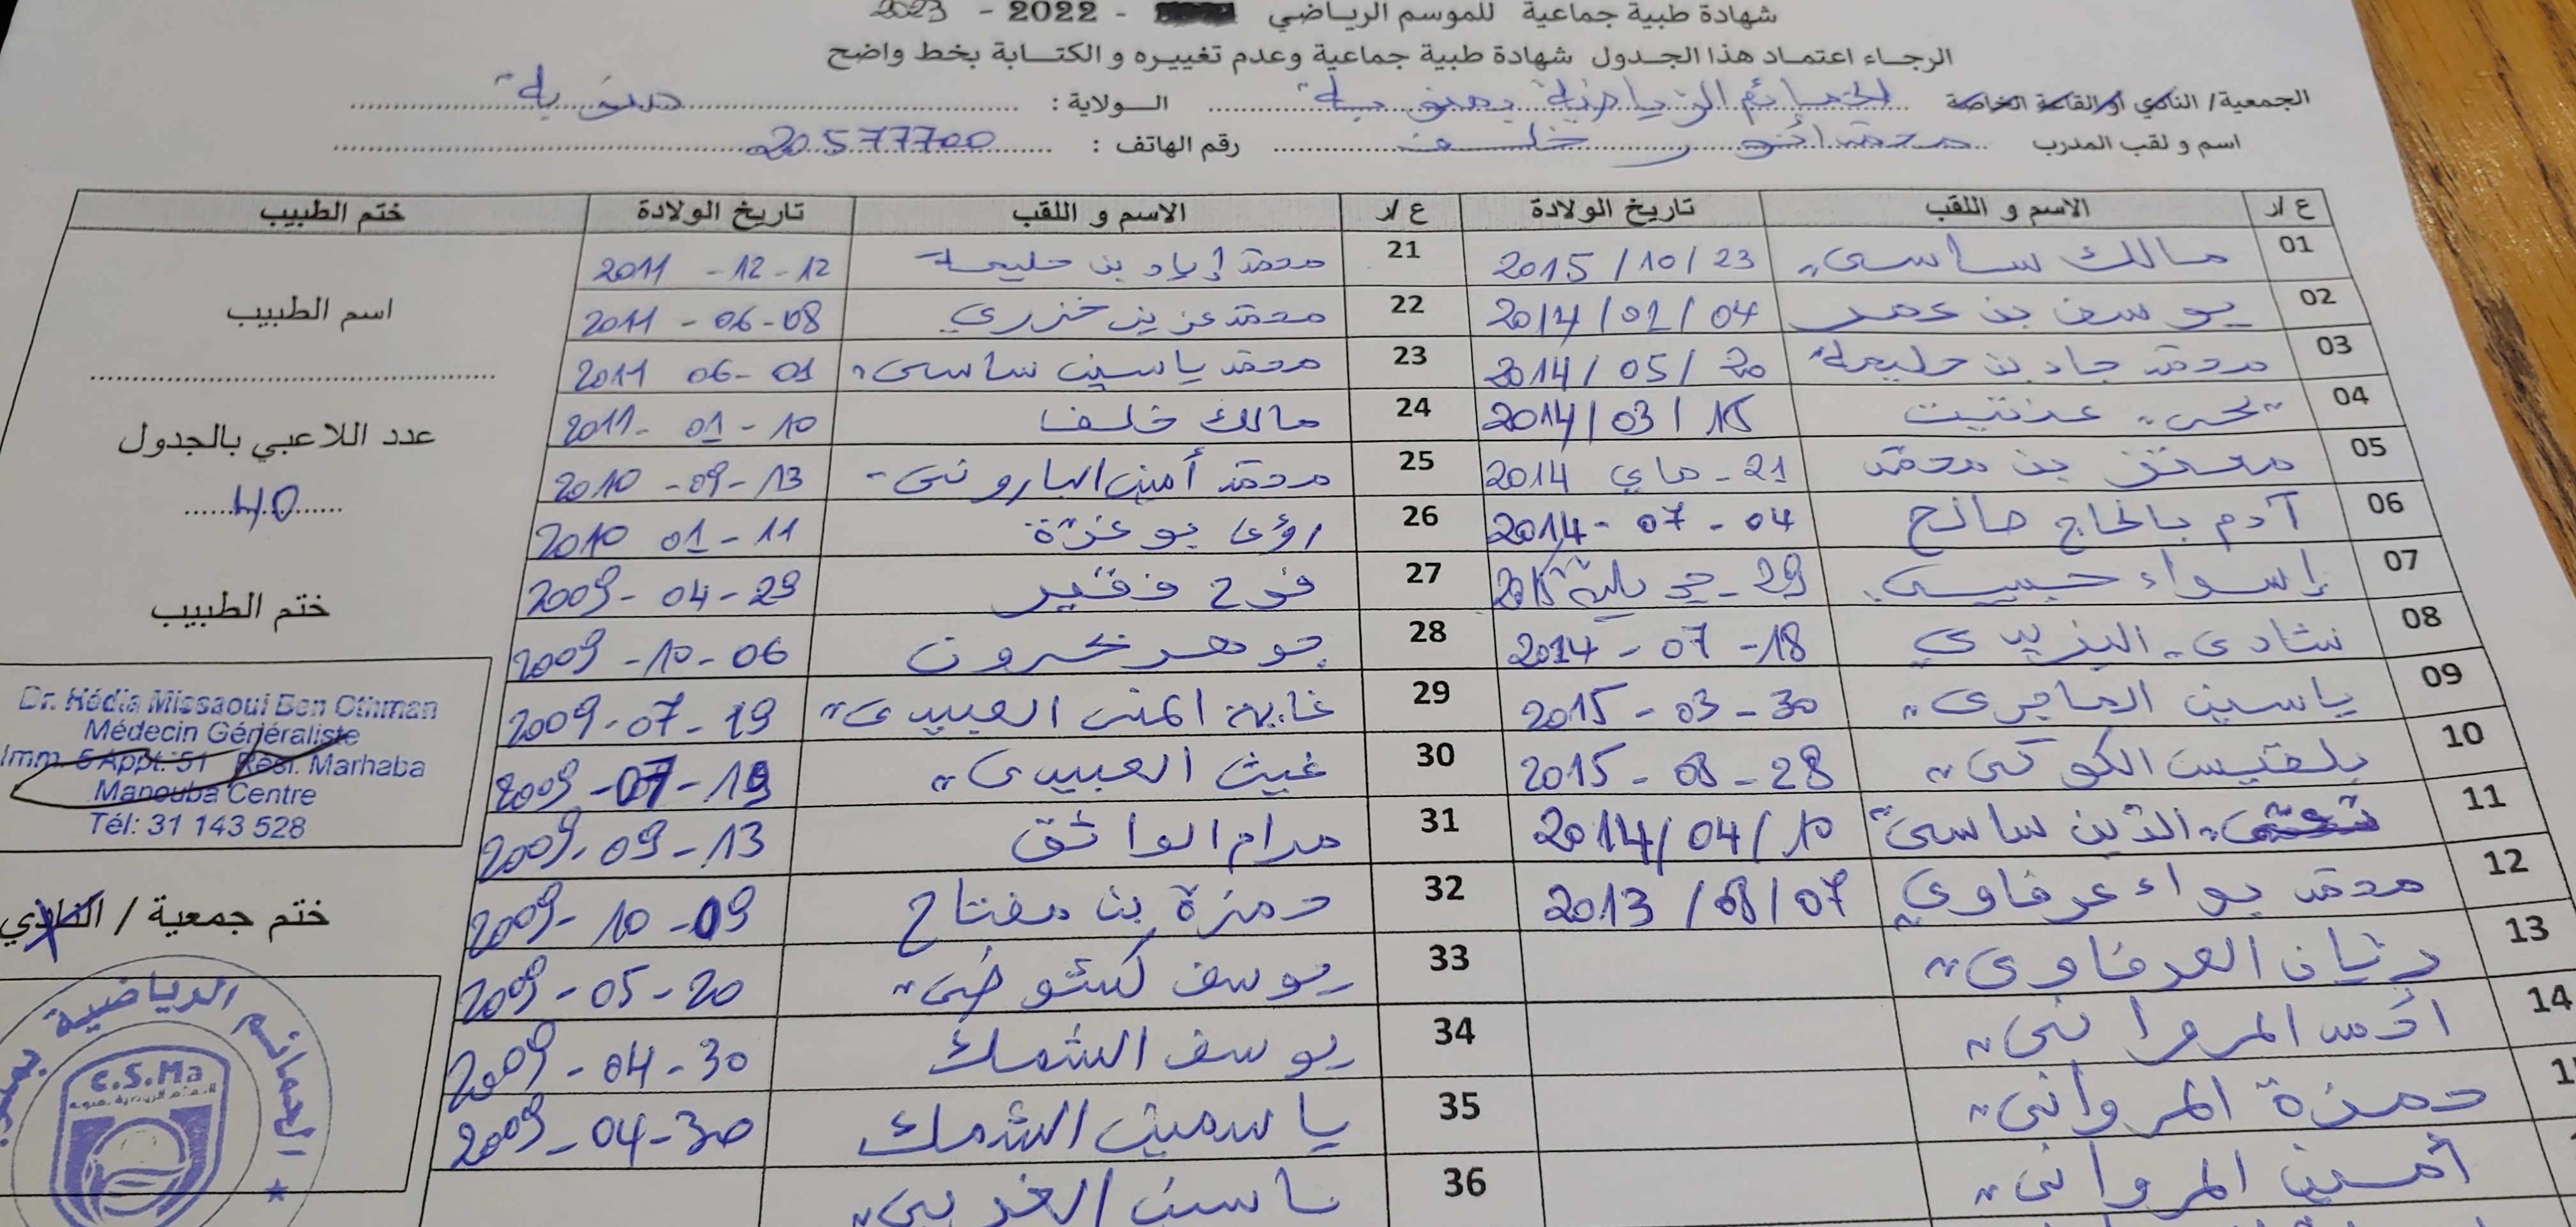 شهادة طبية جماعية للموسم الرياضي - 2022 - 2023
الرجاء اعتماد هذا الجدول شهادة طبية جماعية وعدم تغييره و الكتابة بخط واضح
الجمعية/ النادي او القاعة الخاصة الحمائم الرياضية بمنوبة الولاية : منوبة
اسم و لقب المدرب محمد أنور خلف رقم الهاتف : 20577700
ع/ر الاسم و اللقب تاريخ الولادة ع/ر الاسم و اللقب تاريخ الولادة ختم الطبيب
01 مالك ساسي 2015/10/23 21 محمد إياد بن حليمة 2011 - 12 - 12
02 يوسف بن عمر 2014/02/04 22 محمد عزيز خزري 2011 - 06 - 08
اسم الطبيب
03 محمد جاد بن حليمة 2014/05/20 23 محمد ياسين ساسي 2011 06 - 01
04 يحي 2014/03/15 24 مالك خلف 2011 - 01 - 10
عدد اللاعبي بالجدول
05 معتز بن محمد 21 - ماي 2014 25 محمد أمين الباروني 2010 - 09 - 13
40
06 آدم بالحاج صالح 2014 - 07 - 04 26 رؤى بوعزة 2010 01 - 11
07 إسراء حبيبي 29 - جويلية 27 فرح فقير 2009 - 04 - 29
ختم الطبيب
08 شادي اليزيدي 2014 - 07 - 18 28 جوهر 2009 - 10 - 06
09 ياسين الماجري 2015 - 03 - 30 29 غاية المنى العبيدي 2009 - 07 - 19
10 بلقيس الكوكي 2015 - 08 - 28 30 غيث العبيدي 2009 - 07 - 19
Dr. Hédia Missaoui Ben Othman
Médecin Généraliste
Imm. 5 Appt. 51 Rési. Marhaba
Manouba Centre
Tél: 31 143 528
11 الدين ساسي 2014/04/10 31 مرام الواثق 2009 - 09 - 13
12 محمد براء عرفاوي 2013/08/07 32 حمزة بن مفتاح 2009 - 10 - 09
ختم جمعية / النادي
13 ريان العرفاوي 33 يوسف 2009 - 05 - 20
14 المرواني 34 يوسف الشمك 2009 - 04 - 30
حمزة المرواني 35 ياسمين الشمك 2009 - 04 - 30
المرواني 36 ياسين الغربي
الحمائم الرياضية
C.S.Ma